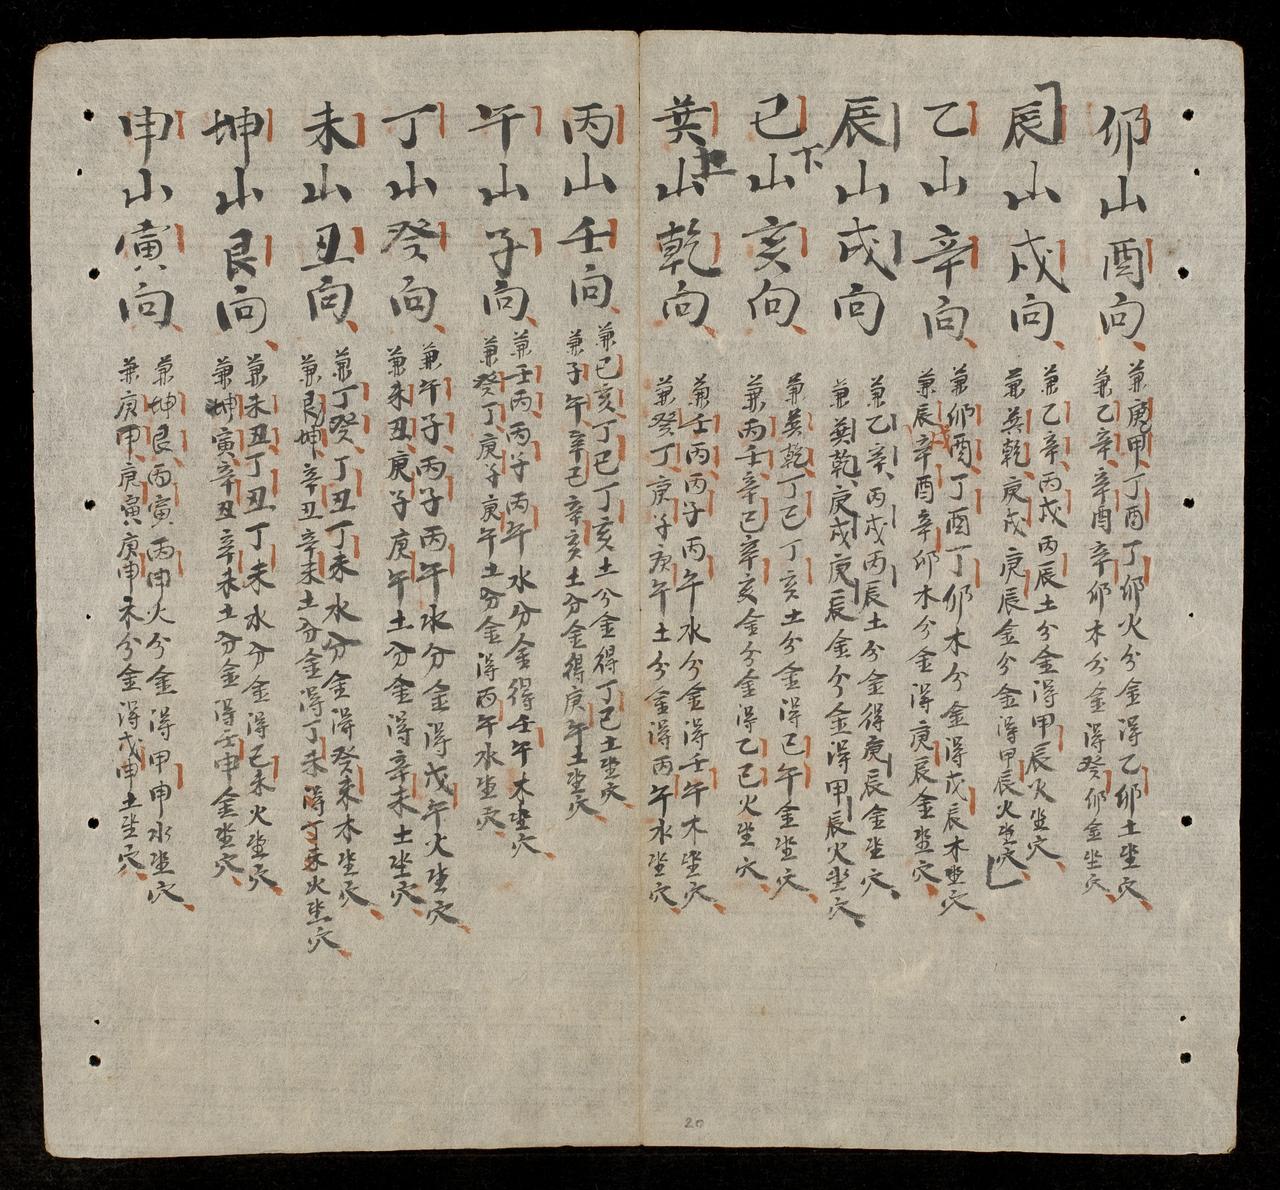 卯山酉向
兼庚甲丁酉丁卯火分金得乙卯土坐穴
兼乙辛辛酉辛卯木分金得癸卯金坐穴
辰山戌向
兼乙辛丙戌丙辰土分金得甲辰火坐穴
兼巽乾庚戌庚辰金分金得甲辰火坐穴
乙山辛向
兼卯酉丁酉丁卯木分金得戊辰木坐穴
兼辰戌辛酉辛卯木分金得庚辰金坐穴
辰山戌向
兼乙辛丙戌丙辰土分金得庚辰金坐穴
兼巽乾庚戌庚辰金分金得甲辰火坐穴
巳山亥向
下
兼巽乾丁巳丁亥土分金得巳午金坐穴
兼丙壬辛巳辛亥金分金得乙巳火坐穴
巽山乾向
上
兼壬丙丙子丙午水分金得壬午木坐穴
兼癸丁庚子庚午土分金得丙午水坐穴
丙山壬向
兼巳亥丁巳丁亥土分金得丁巳土坐穴
兼子午辛巳辛亥土分金得庚午土坐穴
午山子向
兼壬丙丙子丙午水分金得壬午木坐穴
兼癸丁庚子庚午土分金得丙午水坐穴
丁山癸向
兼午子丙子丙午水分金得戊午火坐穴
兼未丑庚子庚午土分金得辛未土坐穴
未山丑向
兼丁癸丁丑丁未水分金得癸未木坐穴
兼艮坤辛丑辛未土分金得丁未得丁未火坐穴
坤山艮向
兼未丑丁丑丁未水分金得己未火坐穴
兼坤寅辛丑辛未土分金得壬申金坐穴
申山寅向
兼坤艮丙寅丙申火分金得甲申水坐穴
兼庚甲庚寅庚申木分金得戊申土坐穴
20